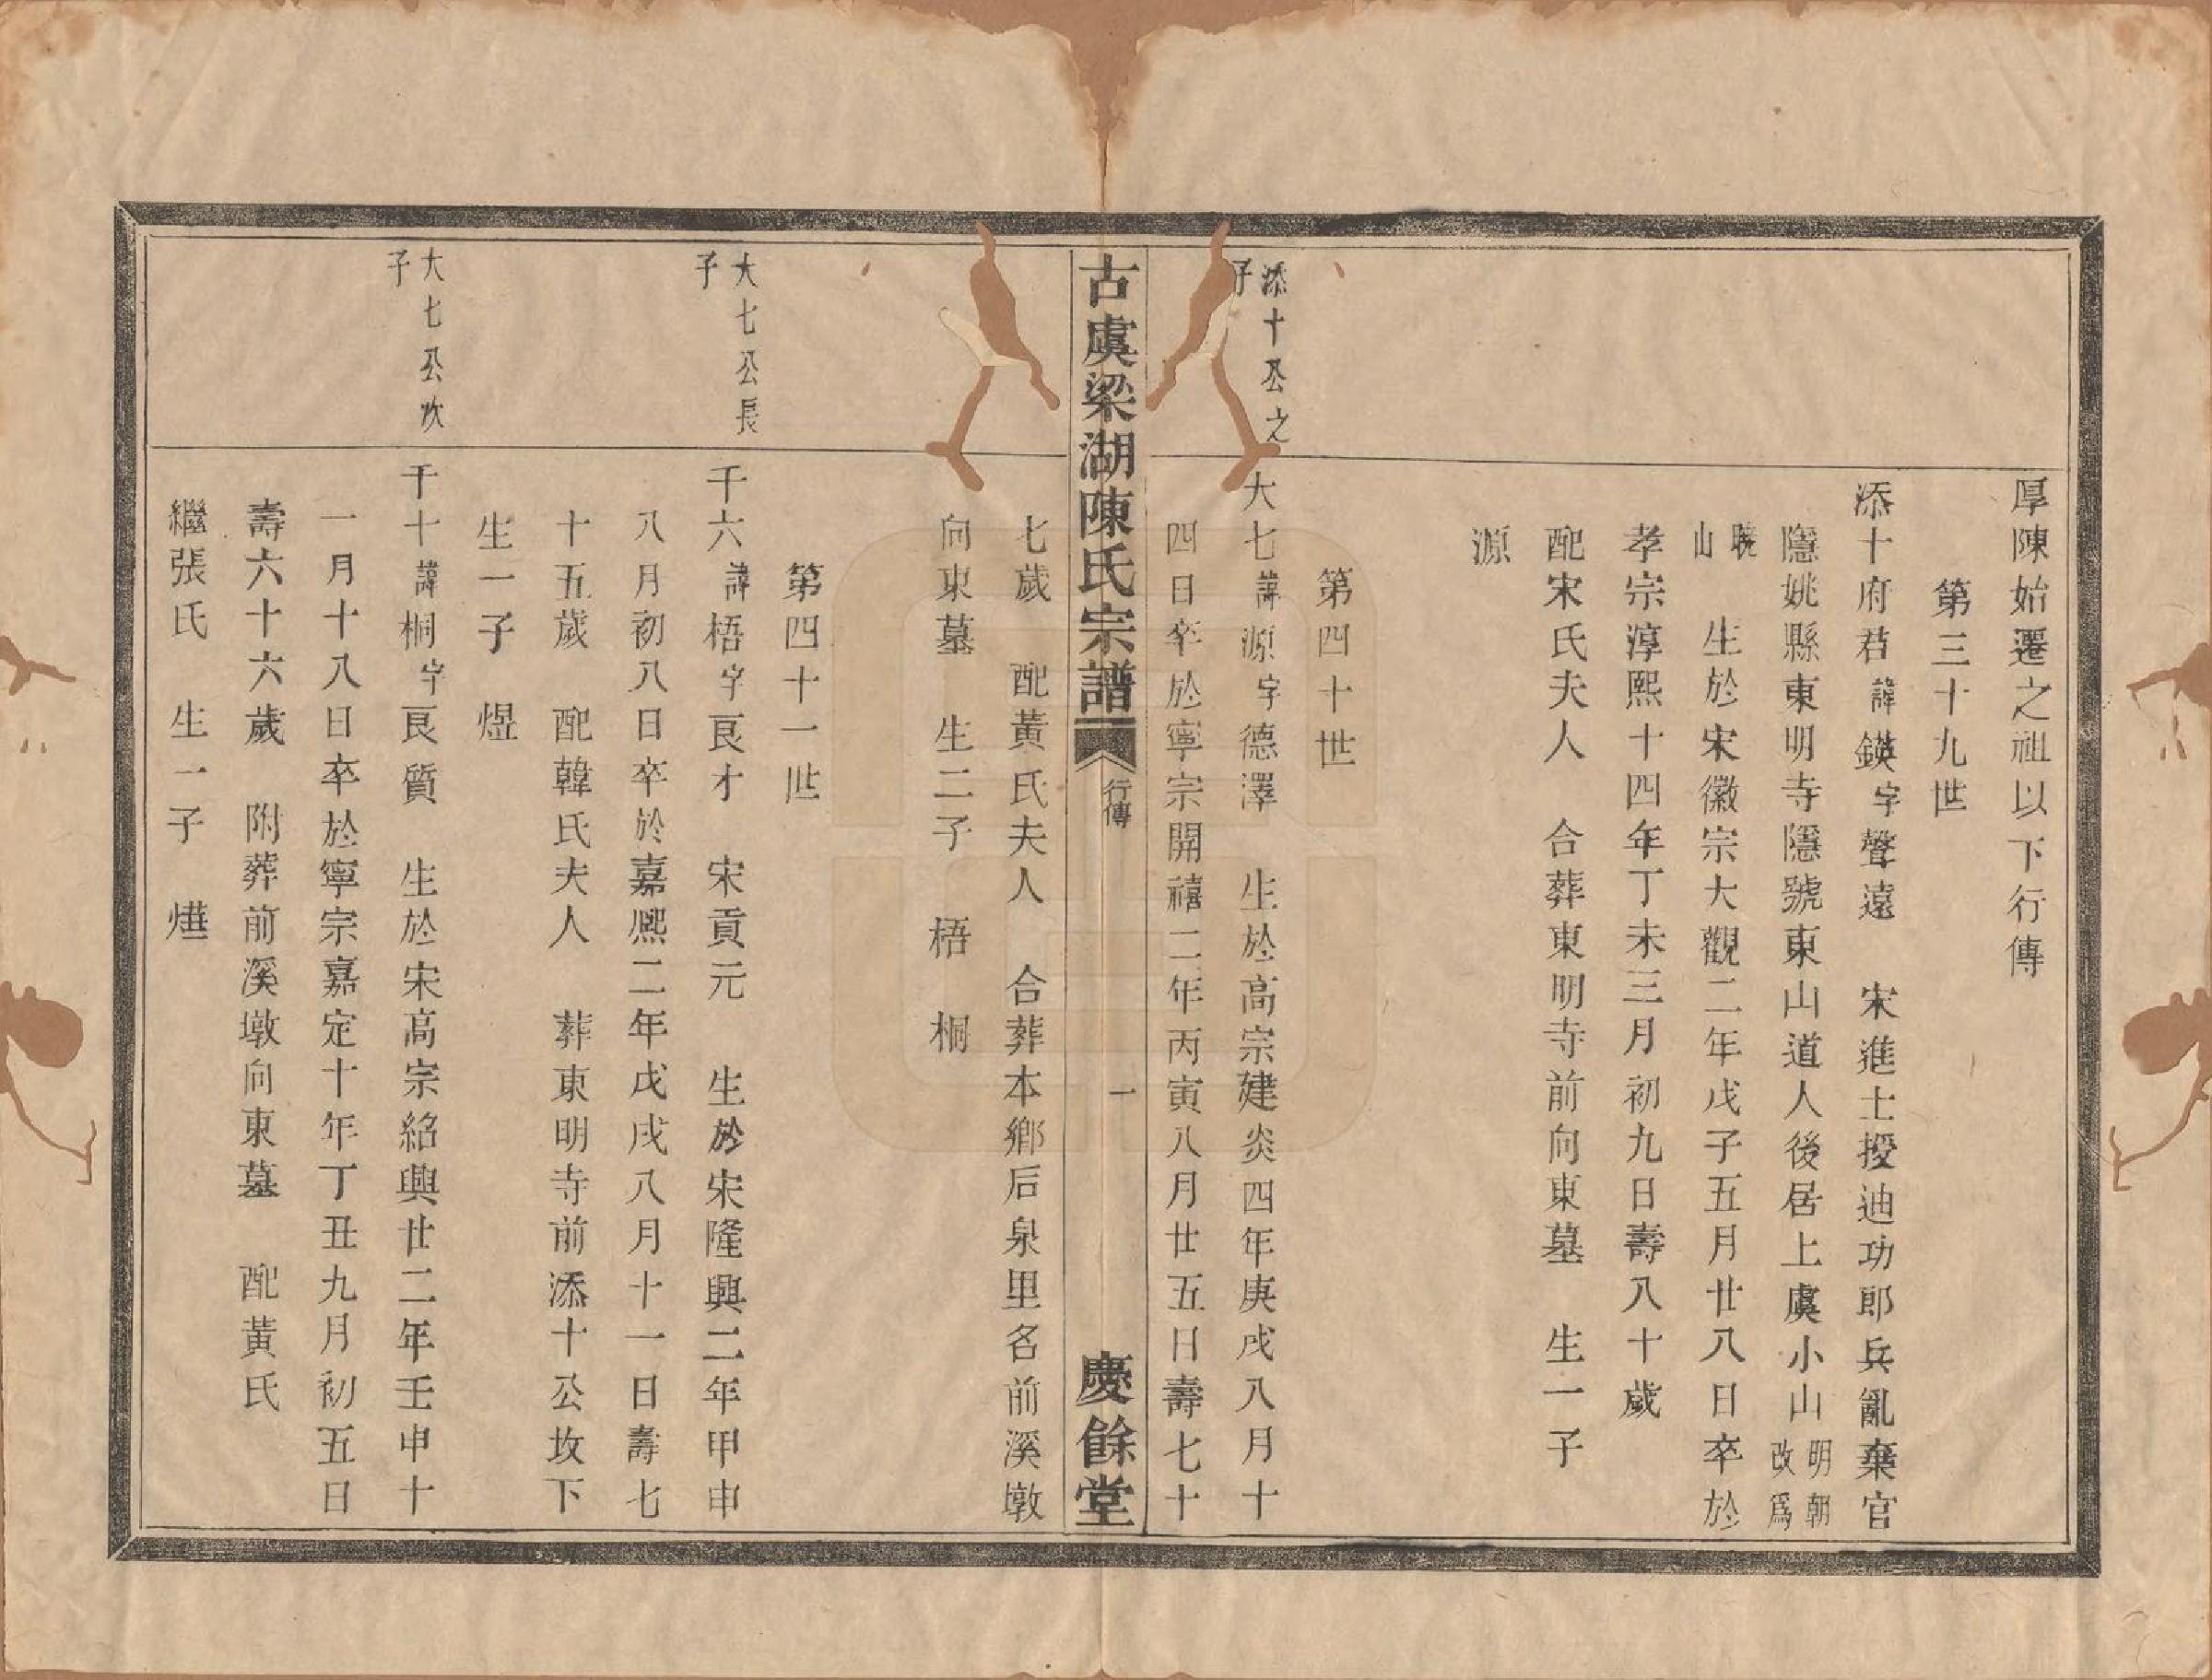 厚陳始遷之祖以下行傳
第三十九世
添十府君諱鍈字聲遠　宋進士授迪功郎兵亂棄官
隱姚縣東明寺隱號東山道人後居上虞小山明朝改爲
曉山　生於宋徽宗大觀二年戊子五月廿八日卒於
孝宗淳熙十四年丁未三月初九日壽八十歲
配宋氏夫人　合葬東明寺前向東墓　生一子
源
第四十世
添十公之子
大七諱源字德澤　生於高宗建炎四年庚戌八月十
四日卒於寧宗開禧二年丙寅八月廿五日壽七十
古虞梁湖陳氏宗譜　行傳　一　慶餘堂
七歲　配黃氏夫人　合葬本鄉后泉里名前溪墩
向東墓　生二子　梧　桐
第四十一世
大七公長子
千六諱梧字良才　宋貢元　生於宋隆興二年甲申
八月初八日卒於嘉熙二年戊戌八月十一日壽七
十五歲　配韓氏夫人　葬東明寺前添十公坟下
生一子　煜
大七公次子
千十諱桐字良質　生於宋高宗紹興廿二年壬申十
一月十八日卒於寧宗嘉定十年丁丑九月初五日
壽六十六歲　附葬前溪墩向東墓　配黃氏
繼張氏　生一子　燁